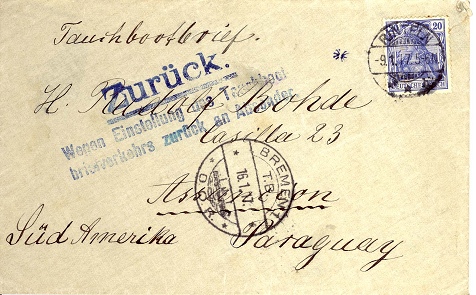 Tauchbootbrief.
20
Zurück.
H. Rohde
Wegen Einstellung des Tauchboot
briefverkehrs zurück an Absender
Casilla 23
BREMEN 1
T.B.
16.1.17.
Asuncion
Süd Amerika Paraguay